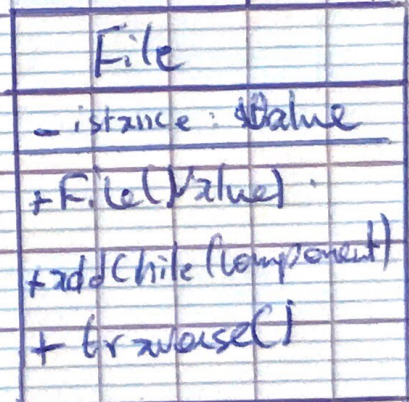 File
- istance : Value
+ File(Value)
+ addChile (Component)
+ traverse()